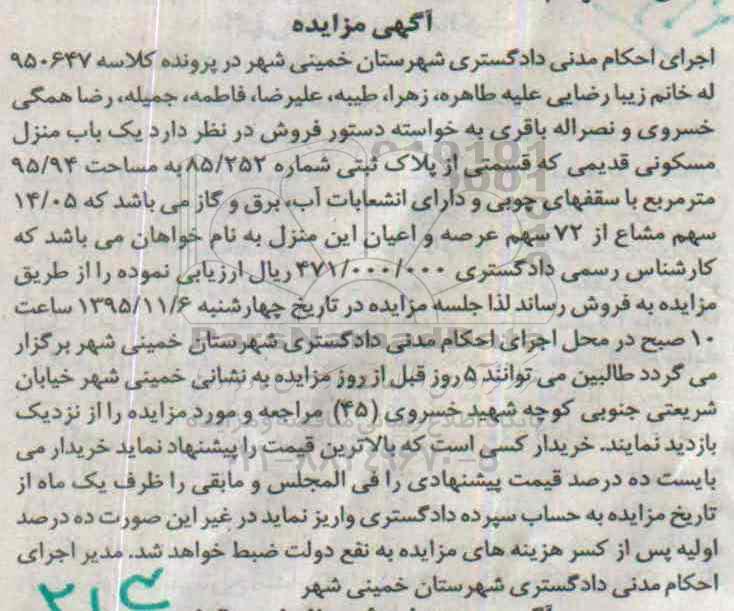 آگهی مزایده
اجرای احکام مدنی دادگستری شهرستان خمینی شهر در پرونده کلاسه ۹۵۰۶۴۷
له خانم زیبا رضایی علیه طاهره، زهرا، طیبه، علیرضا، فاطمه، جمیله، رضا همگی
خسروی و نصراله باقری به خواسته دستور فروش در نظر دارد یک باب منزل
مسکونی قدیمی که قسمتی از پلاک ثبتی شماره ۸۵/۲۵۲ به مساحت ۹۵/۹۴
مترمربع با سقفهای چوبی و دارای انشعابات آب، برق و گاز می باشد که ۱۴/۰۵
سهم مشاع از ۷۲ سهم عرصه و اعیان این منزل به نام خواهان می باشد که
کارشناس رسمی دادگستری ۴۷۱/۰۰۰/۰۰۰ ریال ارزیابی نموده را از طریق
مزایده به فروش رساند لذا جلسه مزایده در تاریخ چهارشنبه ۱۳۹۵/۱۱/۶ ساعت
۱۰ صبح در محل اجرای احکام مدنی دادگستری شهرستان خمینی شهر برگزار
می گردد طالبین می توانند ۵ روز قبل از روز مزایده به نشانی خمینی شهر خیابان
شریعتی جنوبی کوچه شهید خسروی (۴۵) مراجعه و مورد مزایده را از نزدیک
بازدید نمایند. خریدار کسی است که بالاترین قیمت را پیشنهاد نماید خریدار می
بایست ده درصد قیمت پیشنهادی را فی المجلس و مابقی را ظرف یک ماه از
تاریخ مزایده به حساب سپرده دادگستری واریز نماید در غیر این صورت ده درصد
اولیه پس از کسر هزینه های مزایده به نفع دولت ضبط خواهد شد. مدیر اجرای
احکام مدنی دادگستری شهرستان خمینی شهر